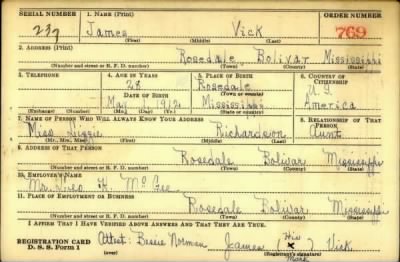 SERIAL NUMBER 1. NAME (Print) ORDER NUMBER
237 James Vick 769
(First) (Middle) (Last)
2. ADDRESS (Print)
Rosedale Bolivar Mississippi
(Number and street or R. F. D. number) (Town) (County) (State)
3. TELEPHONE 4. AGE IN YEARS 5. PLACE OF BIRTH 6. COUNTRY OF CITIZENSHIP
28 Rosedale
DATE OF BIRTH (Town or county) U.S.
May 1912 Mississippi America
(Exchange) (Number) (Mo.) (Day) (Yr.) (State or country)
7. NAME OF PERSON WHO WILL ALWAYS KNOW YOUR ADDRESS 8. RELATIONSHIP OF THAT PERSON
Miss Lizzie Richardson Aunt
(Mr., Mrs., Miss) (First) (Middle) (Last)
9. ADDRESS OF THAT PERSON
Rosedale Bolivar Mississippi
(Number and street or R. F. D. number) (Town) (County) (State)
10. EMPLOYER'S NAME
Mr. H. McGee
11. PLACE OF EMPLOYMENT OR BUSINESS
Rosedale Bolivar Mississippi
(Number and street or R. F. D. number) (Town) (County) (State)
I AFFIRM THAT I HAVE VERIFIED ABOVE ANSWERS AND THAT THEY ARE TRUE.
REGISTRATION CARD Attest Bessie Norman James (His X Mark) Vick
D. S. S. Form 1 (over) (Registrant's signature)